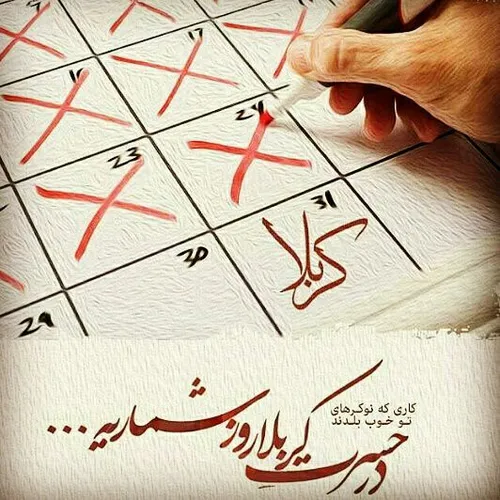 17
16
24
23
31
کربلا
30
29
کاری که نوکرهای
تو خوب بلدند
در حسرت کربلا روز شماریه ...